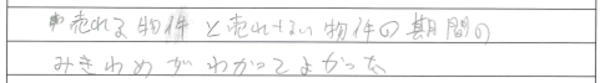 売れる物件と売れない物件の期間の
みきわめがわかってよかった